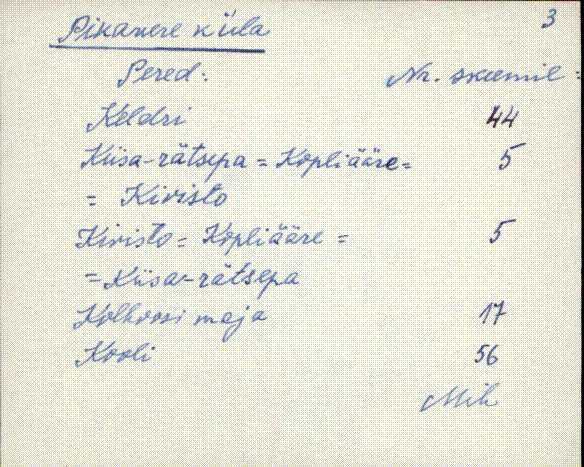 3
Pikavere küla
Pered: Nr. skeemil:
Keldri 44
Kiisa-rätsepa = Kopliääre= 5
= Kivisto
Kivisto = Kopliääre = 5
= Kiisa-rätsepa
Kolhoosi maja 17
Kooli 56